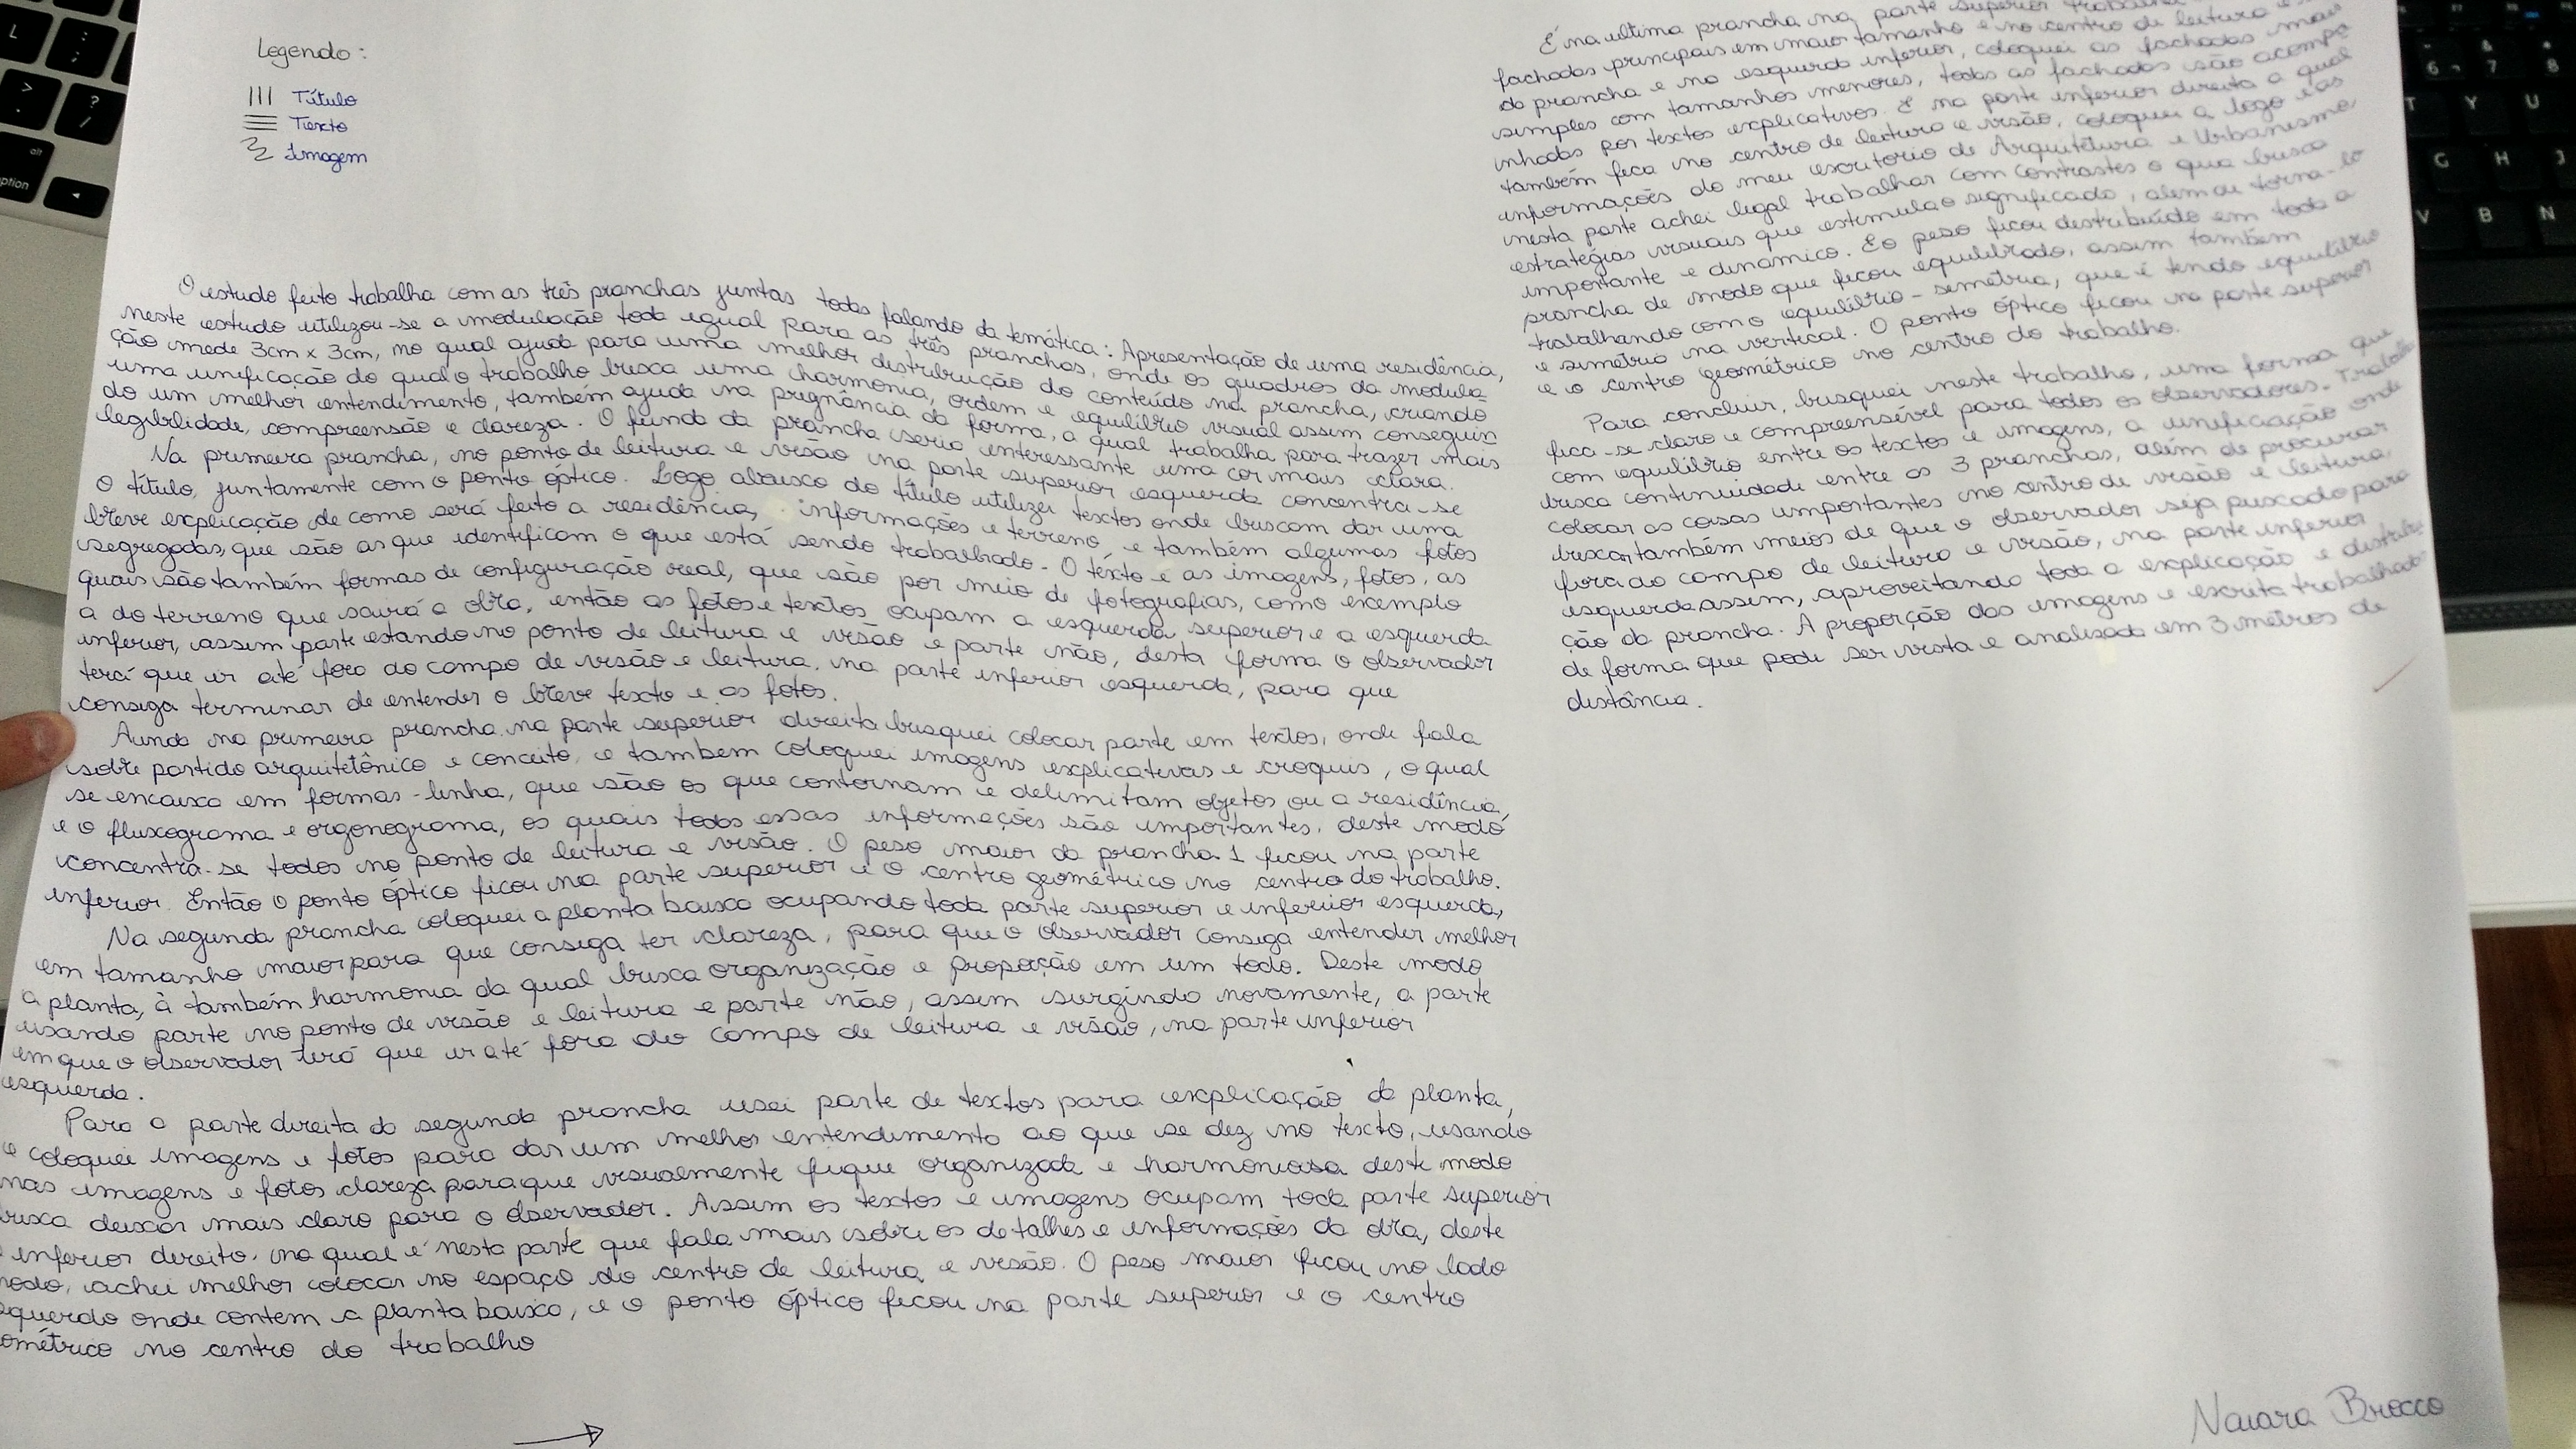 Legenda:
Título
Texto
Imagem
O estudo feito trabalha com as três pranchas juntas todas falando da temática: Apresentação de uma residência,
neste estudo utilizou-se a modulação toda igual para as três pranchas, onde os quadros da modula-
ção mede 3cm x 3cm, no qual ajuda para uma melhor distribuição do conteúdo na prancha, criando
uma unificação do qual o trabalho busca uma charmonia, ordem e equilíbrio visual assim conseguin
do um melhor entendimento, também ajuda na pregnância da forma, a qual trabalha para trazer mais
legibilidade, compreensão e clareza. O fundo da prancha seria interessante uma cor mais clara.
Na primeira prancha, no ponto de leitura e visão na parte superior esquerda concentra-se
o título, juntamente com o ponto óptico. Logo abaixo do título utilizei textos onde buscam dar uma
breve explicação de como será feito a residência, informações e terreno, e também algumas fotos
segregadas, que são as que identificam o que está sendo trabalhado. O texto e as imagens, fotos, as
quais são também formas de configuração real, que são por meio de fotografias, como exemplo
a do terreno que sairá a obra, então as fotos e textos ocupam a esquerda superior e a esquerda
inferior, assim parte estando no ponto de leitura e visão e parte não, desta forma o observador
terá que ir até fora do campo de visão e leitura, na parte inferior esquerda, para que
consiga terminar de entender o breve texto e as fotos.
Ainda na primeira prancha na parte superior direita busquei colocar parte em textos, onde fala
sobre partido arquitetônico e conceito, e também coloquei imagens explicativas e croquis, o qual
se encaixa em formas-linha, que são os que contornam e delimitam objetos ou a residência,
e o fluxograma e orgonograma, os quais todos essas informações são importantes, deste modo
concentra-se todos no ponto de leitura e visão. O peso maior da prancha 1 ficou na parte
inferior. Então o ponto óptico ficou na parte superior e o centro geométrico no centro do trabalho.
Na segunda prancha coloquei a planta baixa ocupando toda parte superior e inferior esquerda,
em tamanho maior para que consiga ter clareza, para que o observador consiga entender melhor
a planta, à também harmonia da qual busca organização e proporção em um todo. Deste modo
usando parte no ponto de visão e leitura e parte não, assim surgindo novamente, a parte
em que o observador terá que ir até fora do campo de leitura e visão, na parte inferior
esquerda.
Para a parte direita da segunda prancha usei parte de textos para explicação da planta,
e coloquei imagens e fotos para dar um melhor entendimento ao que se dez no texto, usando
nas imagens e fotos clareza para que visualmente fique organizada e harmoniosa deste modo
busca deixar mais claro para o observador. Assim os textos e imagens ocupam toda parte superior
e inferior direito, na qual é nesta parte que fala mais sobre os detalhes e informações da obra, deste
modo, achei melhor colocar no espaço do centro de leitura e visão. O peso maior ficou no lado
esquerdo onde contem a planta baixa, e o ponto óptico ficou na parte superior e o centro
geométrico no centro do trabalho
E na ultima prancha na parte superior
fachadas principais em maior tamanho e no centro de leitura e
da prancha e na esquerda inferior, coloquei as fachadas mais
simples com tamanhos menores, todas as fachadas são acompa
nhadas por textos explicativos. E na parte inferior direita a qual
também fica no centro de leitura e visão, coloquei a logo e as
informações do meu escritorio de Arquitetura e Urbanismo,
nesta parte achei legal trabalhar com contrastes o qual busca
estratégias visuais que estimula o significado, além de torna-lo
importante e dinamico. E o peso ficou distribuído em toda a
prancha de modo que ficou equilibrado, assim também
trabalhando como equilíbrio-simetria, que é tendo equilíbrio
e simetria na vertical. O ponto óptico ficou na parte superior
e o centro geométrico no centro do trabalho.
Para concluir, busquei neste trabalho, uma forma que
fica-se claro e compreensível para todos os observadores. Trabalh
com equilíbrio entre os textos e imagens, a unificação onde
busca continuidade entre as 3 pranchas, além de procurar
colocar as coisas importantes no centro de visão e leitura,
buscar também meios de que o observador seja puxado para
fora do campo de leitura e visão, na parte inferior
esquerda assim, aproveitando toda a explicação e distribui
ção da prancha. A proporção das imagens e escrita trabalhado
de forma que pode ser vista e analisada em 3 metros de
distância.
Naiara Brocco